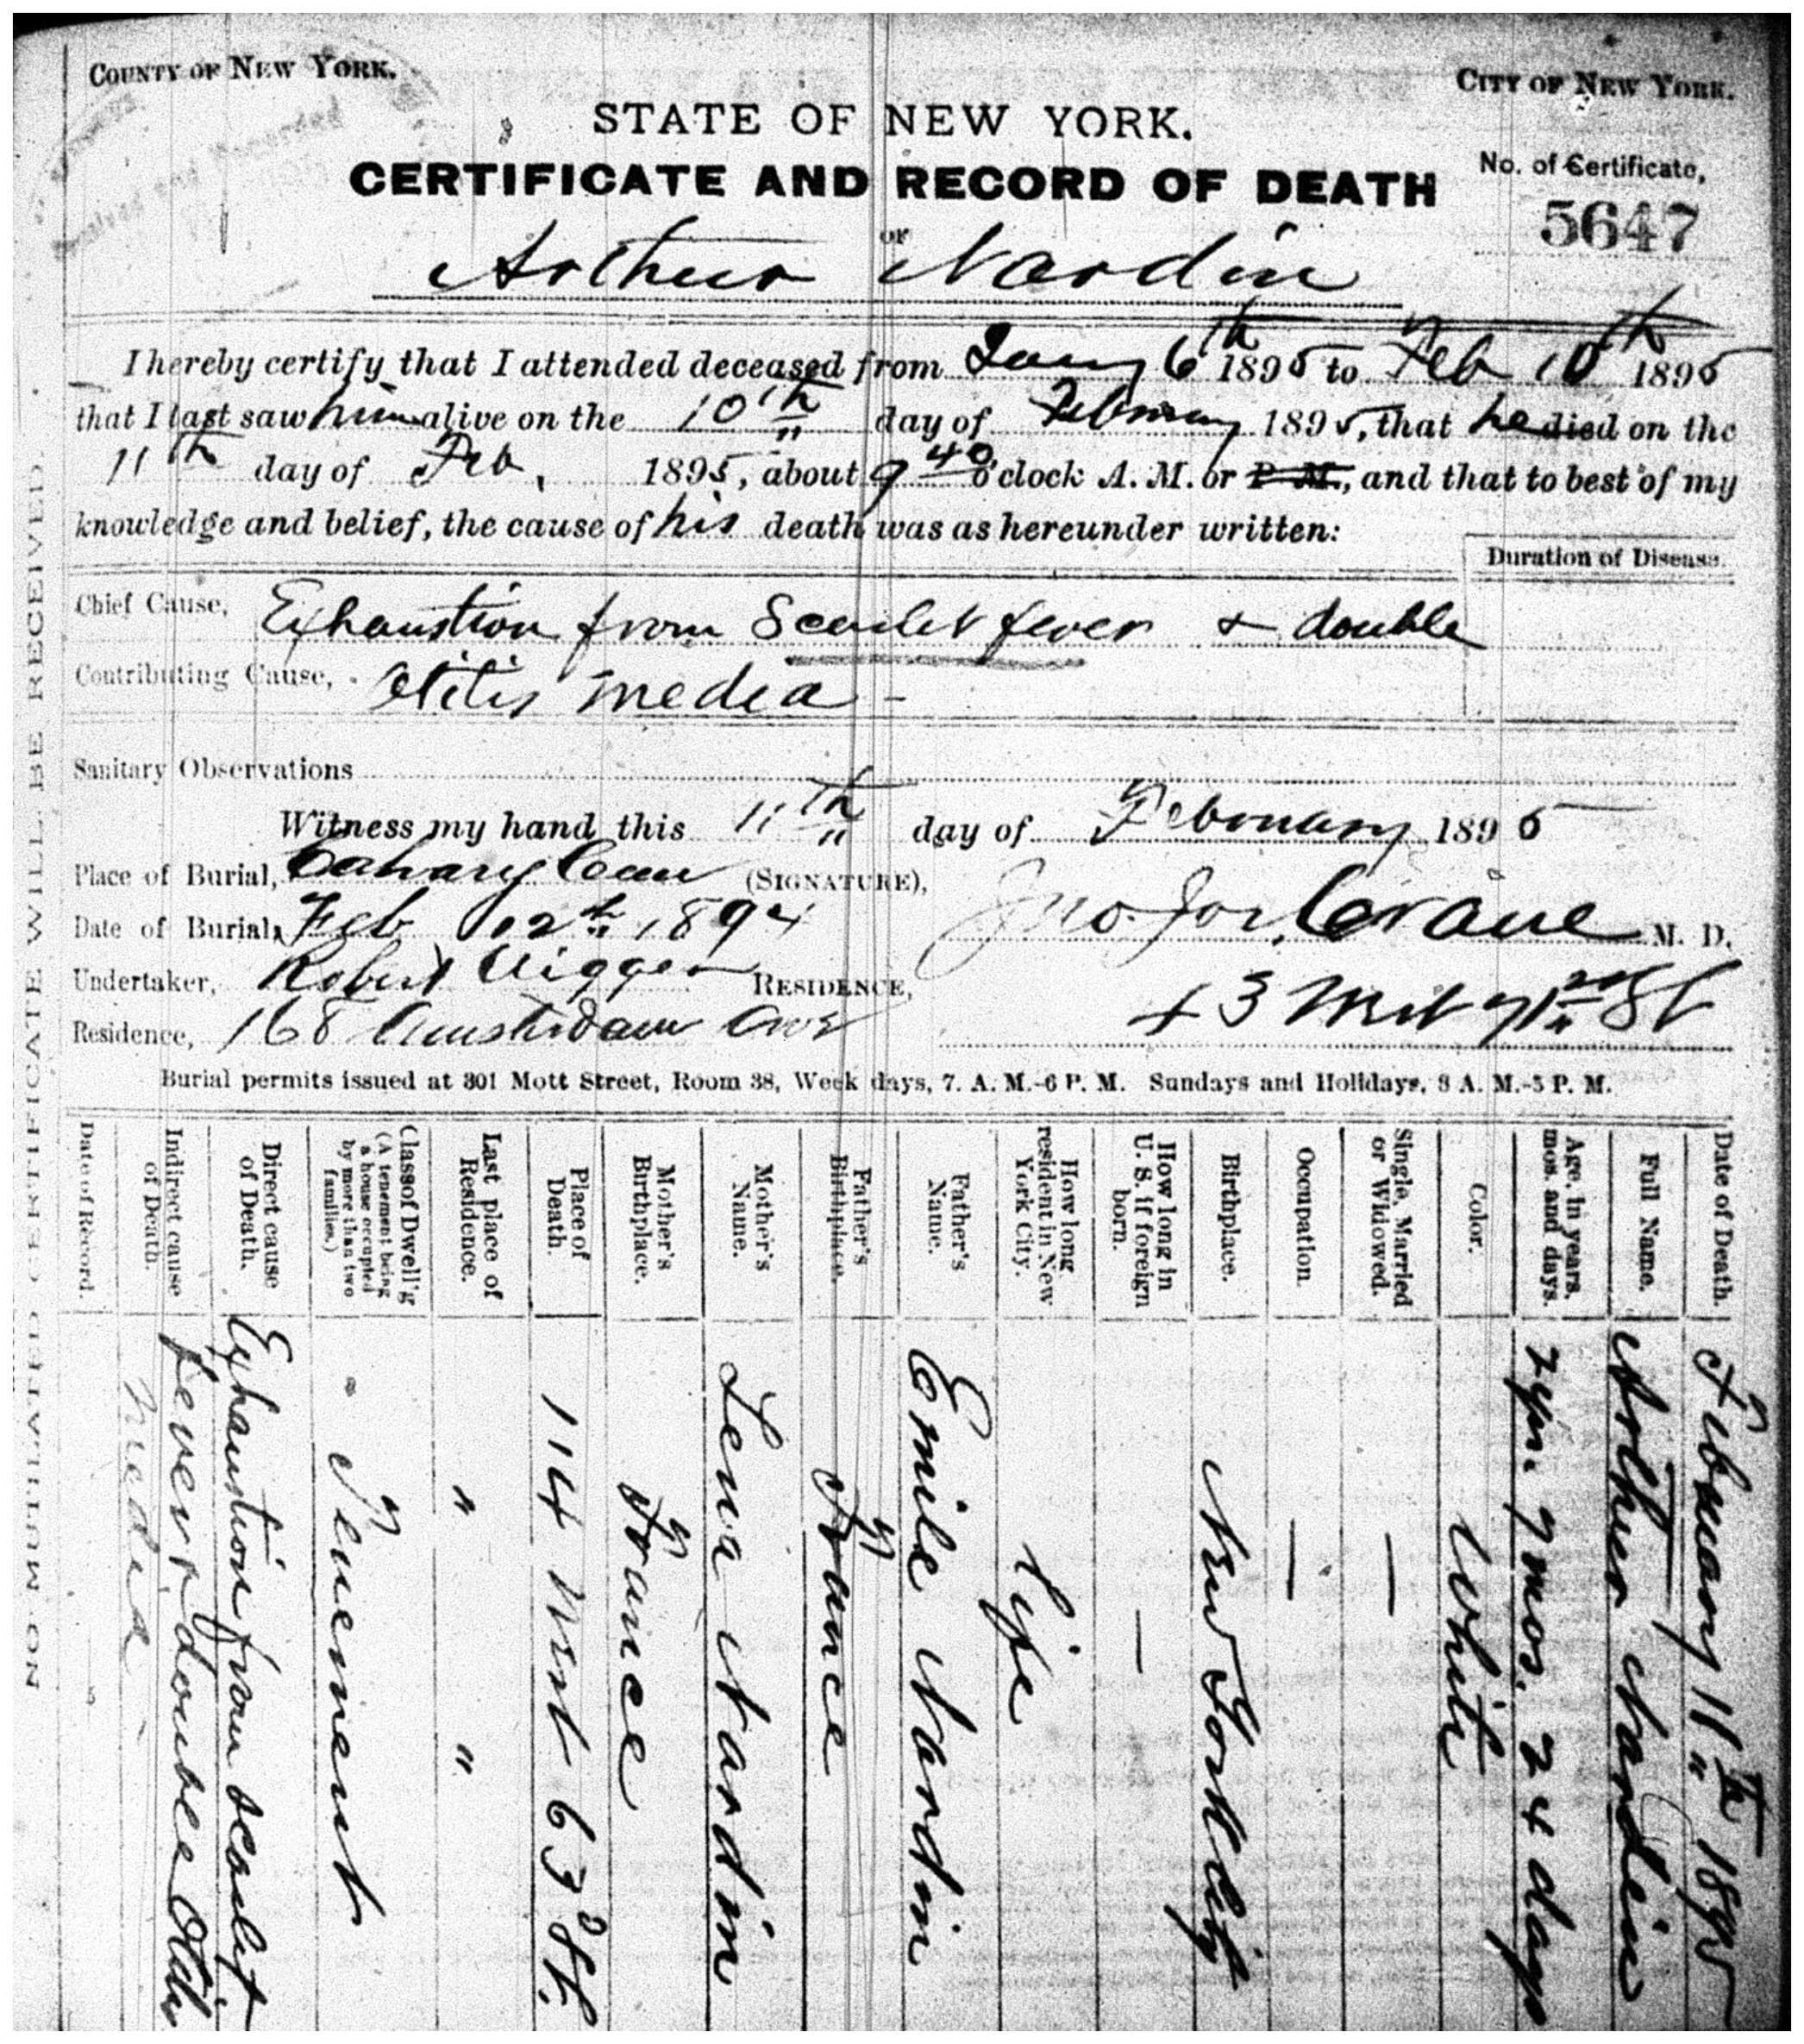 COUNTY OF NEW YORK.
CITY OF NEW YORK.
STATE OF NEW YORK.
CERTIFICATE AND RECORD OF DEATH
No. of Certificate,
5647
OF
Arthur Nardin
I hereby certify that I attended deceased from Jany 6th 1895 to Feb 10th 1895
that I last saw him alive on the 10th day of February 1895, that he died on the
11th day of Feb. 1895, about 9 40 o'clock A. M. or P. M., and that to best of my
knowledge and belief, the cause of his death was as hereunder written:
Duration of Disease.
Chief Cause, Exhaustion from Scarlet fever & double
Contributing Cause, Otitis media -
Sanitary Observations
Witness my hand this 11th day of February 1895
Place of Burial, Calvary Cem (SIGNATURE),
Date of Burial, Feb 12th 1894 Jno. Jos. Crane M. D.
Undertaker, Robert RESIDENCE,
43 West St
Residence, 168 Amsterdam Ave
Burial permits issued at 301 Mott Street, Room 38, Week days, 7. A. M.-6 P. M. Sundays and Holidays, 8 A. M.-5 P. M.
Date of Death. February 11th 1895
Full Name. Arthur Nardin
Age, in years, mos. and days. 2 yrs. 7 mos. 24 days
Color. White
Single, Married or Widowed. —
Occupation. —
Birthplace. New York City
How long in U. S. if foreign born. —
How long resident in New York City. Life
Father's Name. Emile Nardin
Father's Birthplace. France
Mother's Name. Lena Nardin
Mother's Birthplace. France
Place of Death. 114 West 63d St.
Last place of Residence. " "
Class of Dwell'g (A tenement being a house occupied by more than two families.) Tenement
Direct cause of Death. Exhaustion from scarlet
Indirect cause of Death. fever & double Otitis
media -
Date of Record.
NO MUTILATED CERTIFICATE WILL BE RECEIVED.